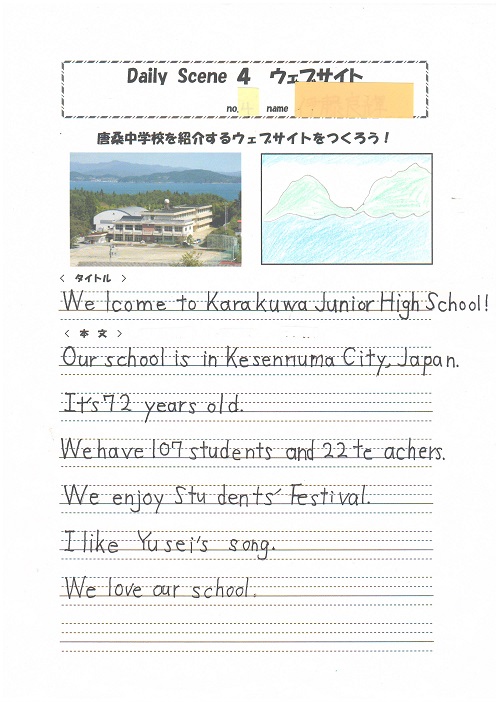 Daily Scene 4 ウェブサイト
no. 4 name
唐桑中学校を紹介するウェブサイトをつくろう！
＜ タイトル ＞
Welcome to Karakuwa Junior High School!
＜ 本 文 ＞
Our school is in Kesennuma City, Japan.
It's 72 years old.
We have 107 students and 22 teachers.
We enjoy Students' Festival.
I like Yusei's song.
We love our school.